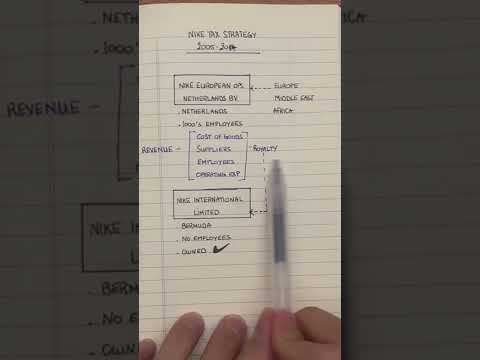 NIKE TAX STRATEGY
2005-2014
NIKE EUROPEAN OPS
NETHERLANDS BV
EUROPE
MIDDLE EAST
AFRICA
. NETHERLANDS
. 1000'S EMPLOYEES
REVENUE -
COST OF GOODS
SUPPLIERS
EMPLOYEES
OPERATING EXP
- ROYALTY
NIKE INTERNATIONAL
LIMITED
. BERMUDA
. NO EMPLOYEES
. OWNED ✓